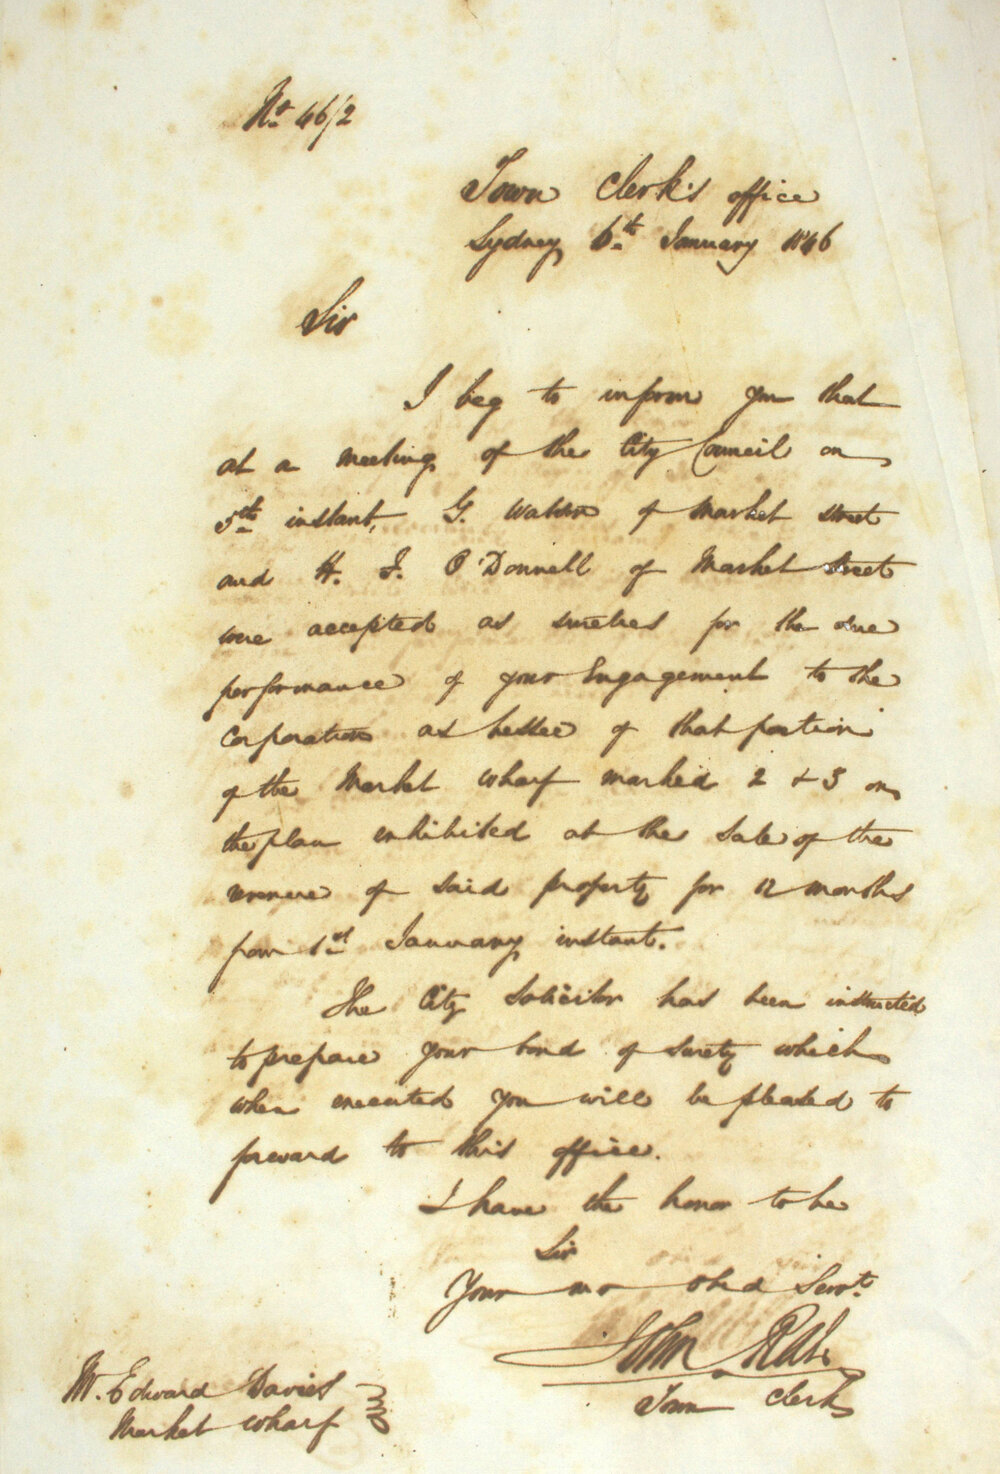 No. 46/2
Town Clerk's office
Sydney 6th January 1846
Sir
I beg to inform you that
at a meeting of the City Council on
5th instant, G. of Market street
and H. J. O'Donnell of Market Street
were accepted as sureties for the due
performance of your Engagement to the
Corporation as Lessee of that portion
of the Market Wharf marked 2 & 3 on
the plan exhibited at the Sale of the
revenue of said property for 12 months
from 1st January instant.
The City Solicitor has been instructed
to prepare your bond of Surety which
when executed you will be pleased to
forward to this office.
I have the honor to be
Sir
Your mo obed Servt.
John Rae
Town Clerk
Mr. Edward Davies
Market Wharf